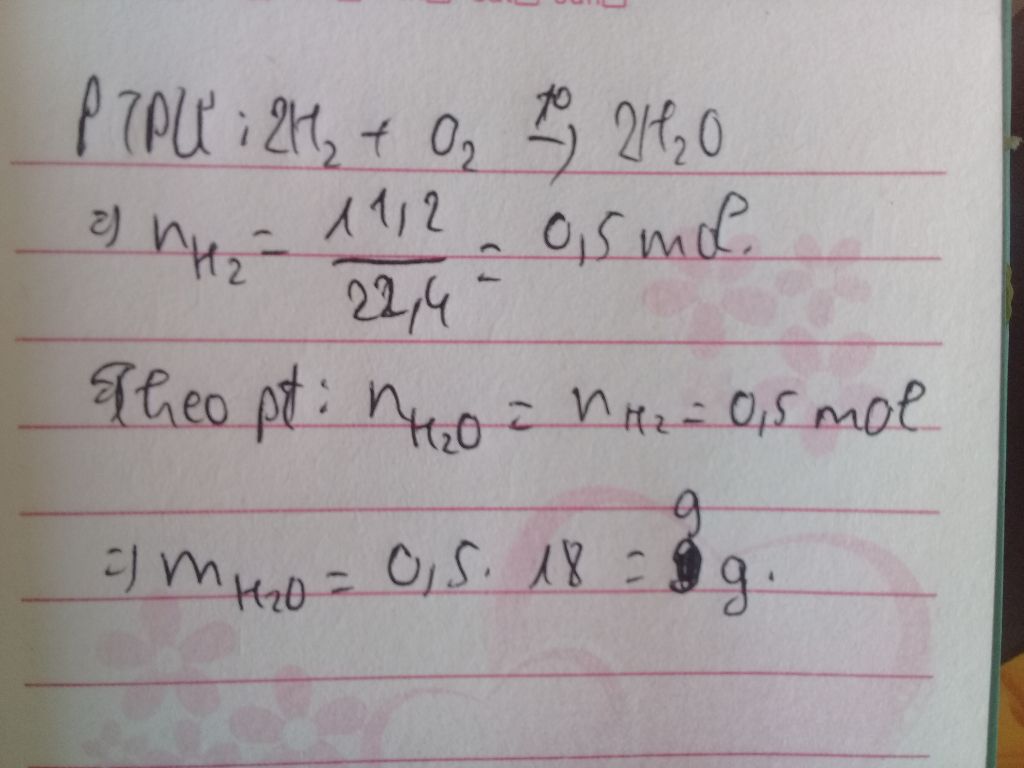 PTPƯ : 2H₂ + O₂ →(t°) 2H₂O
=) nH₂ = 11,2 / 22,4 = 0,5 mol.
Theo pt : nH₂O = nH₂ = 0,5 mol
=) mH₂O = 0,5 . 18 = 9 g.